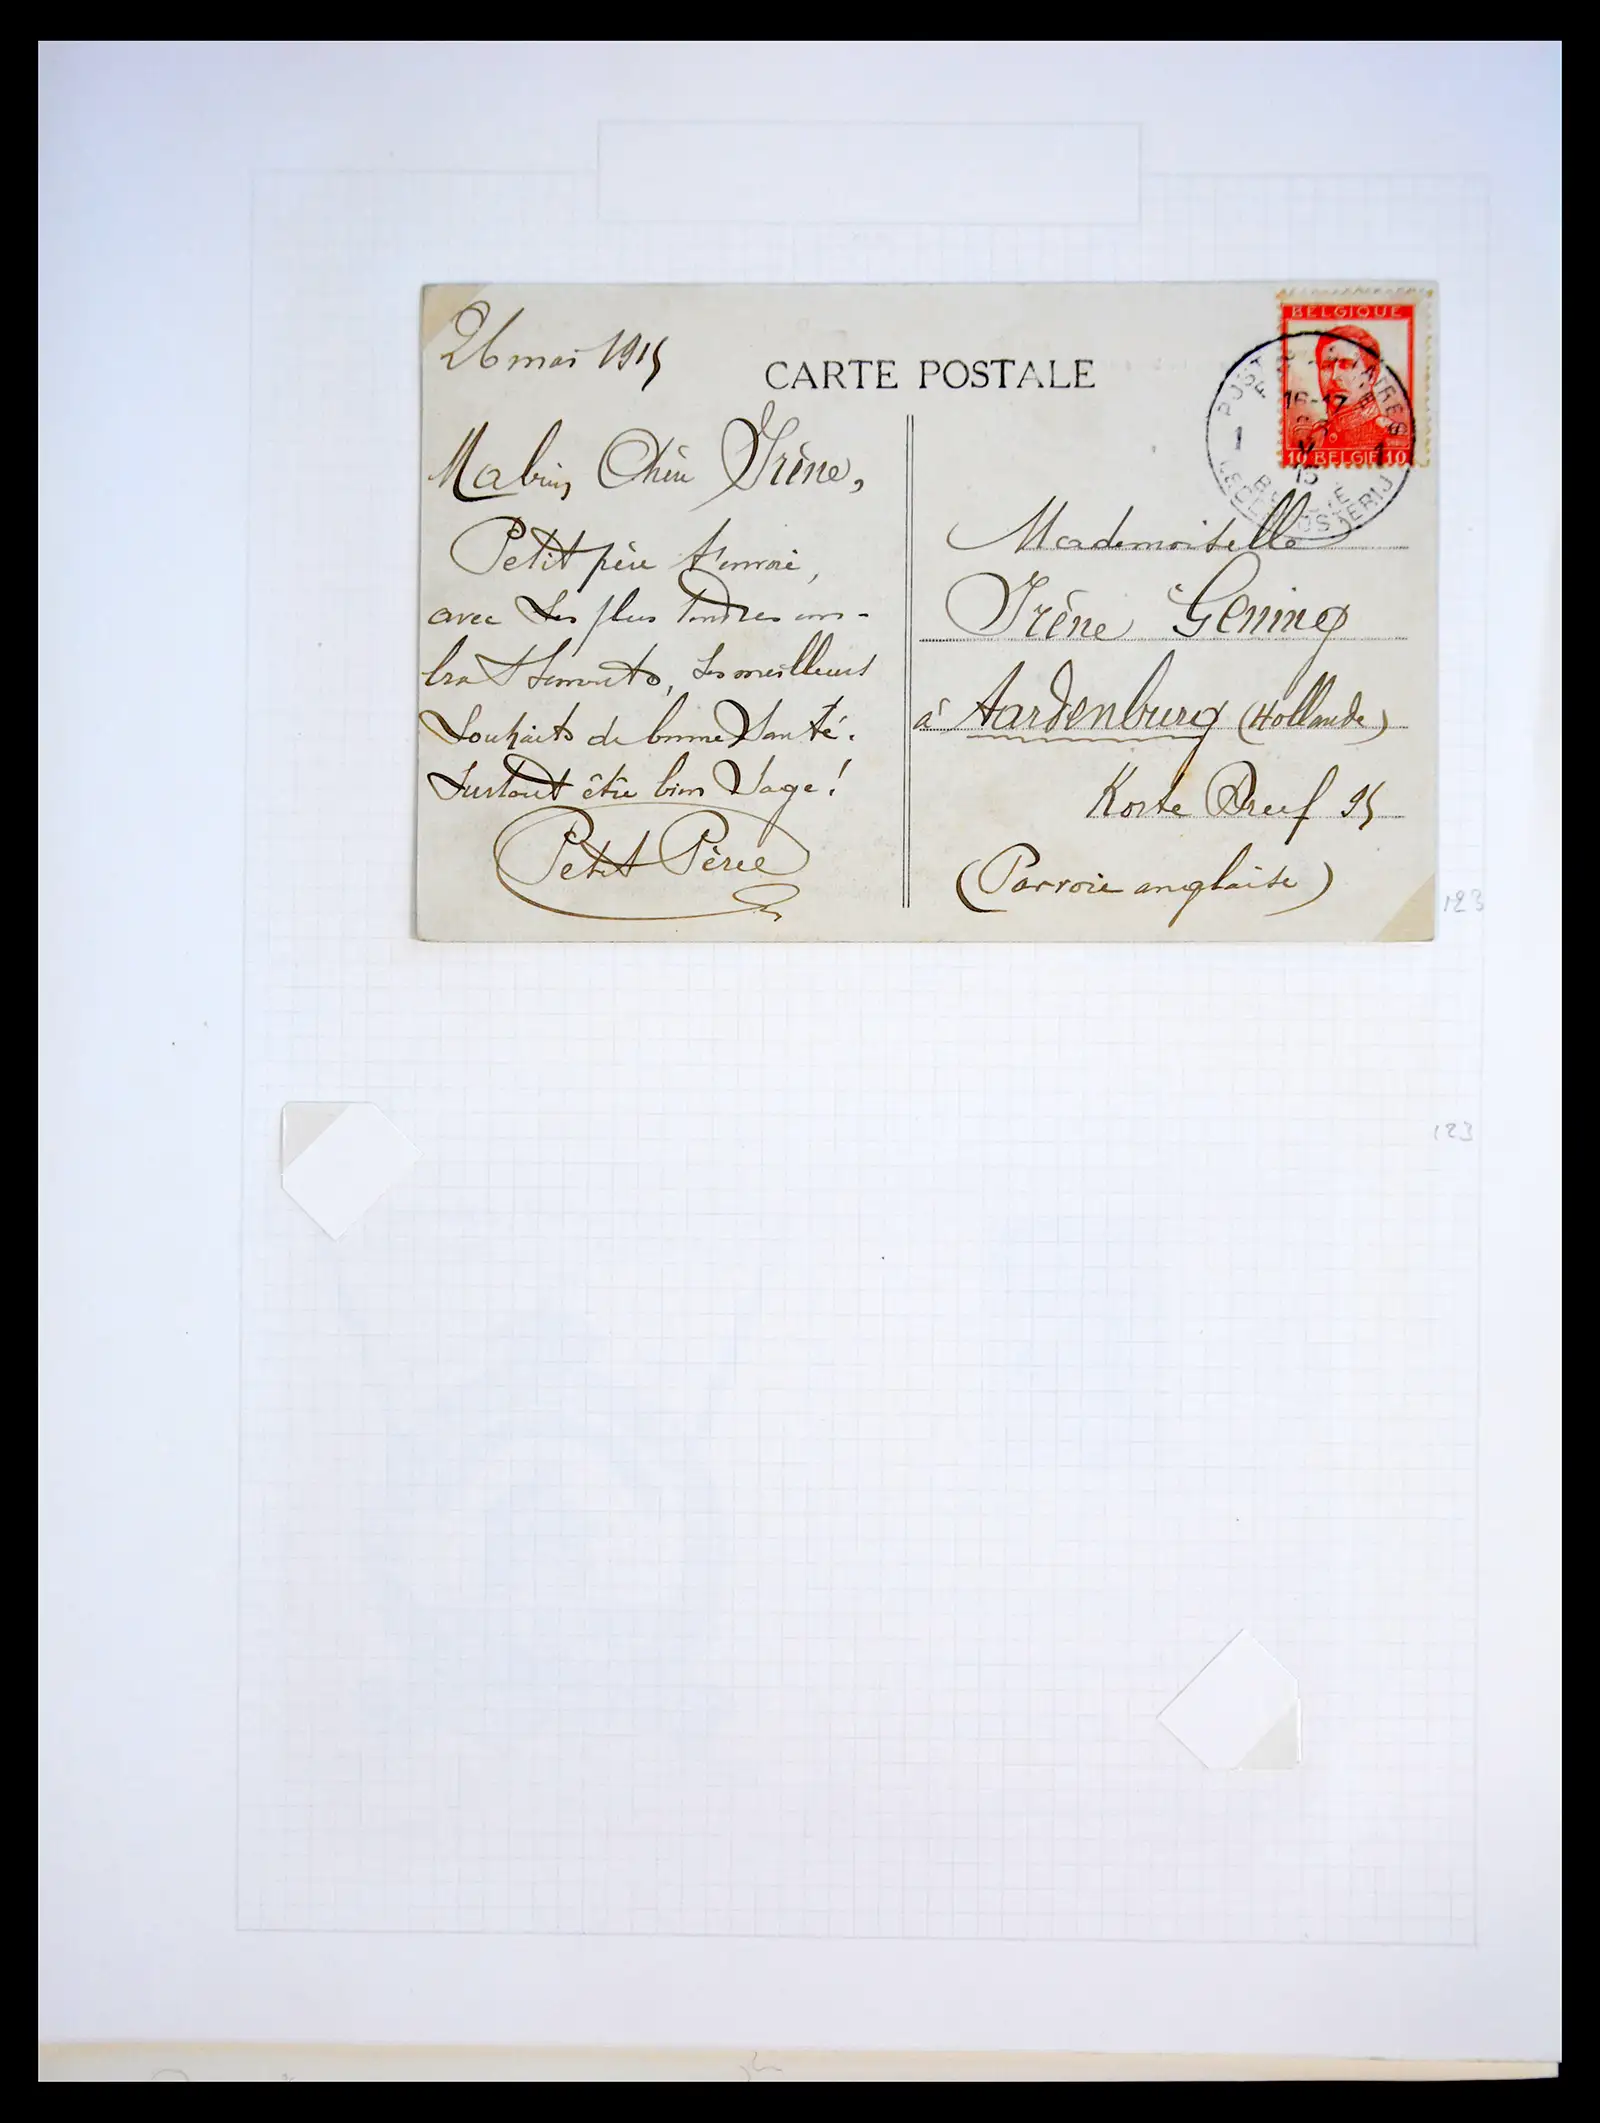 26 mai 1915
CARTE POSTALE
Ma bien Chère Irène,
Petit père t'envoie,
avec ses plus tendres em-
brassements, ses meilleurs
souhaits de bonne santé.
Surtout être bien sage!
Petit Père
BELGIQUE
10 BELGIË 10
16-17
V
15
1
1
Mademoiselle
Irène Gening
à Aardenburg (Hollande)
Korte Dreef 95
(Parroie anglaise)
123
123